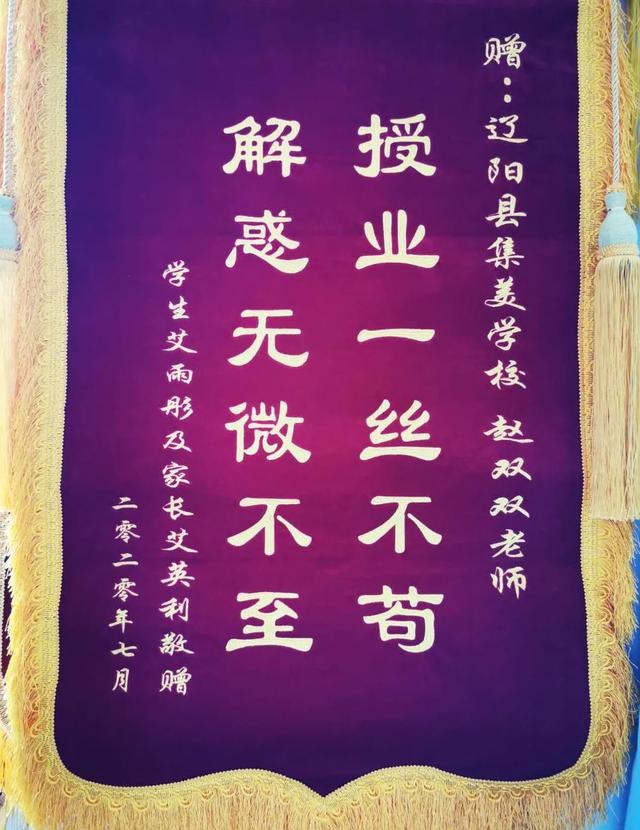 赠：辽阳县集美学校 赵双双老师
授业一丝不苟
解惑无微不至
学生艾雨彤及家长艾英利敬赠
二零二零年七月